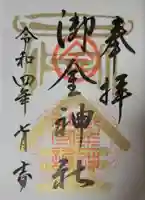 奉拝
御金神社
令和四年